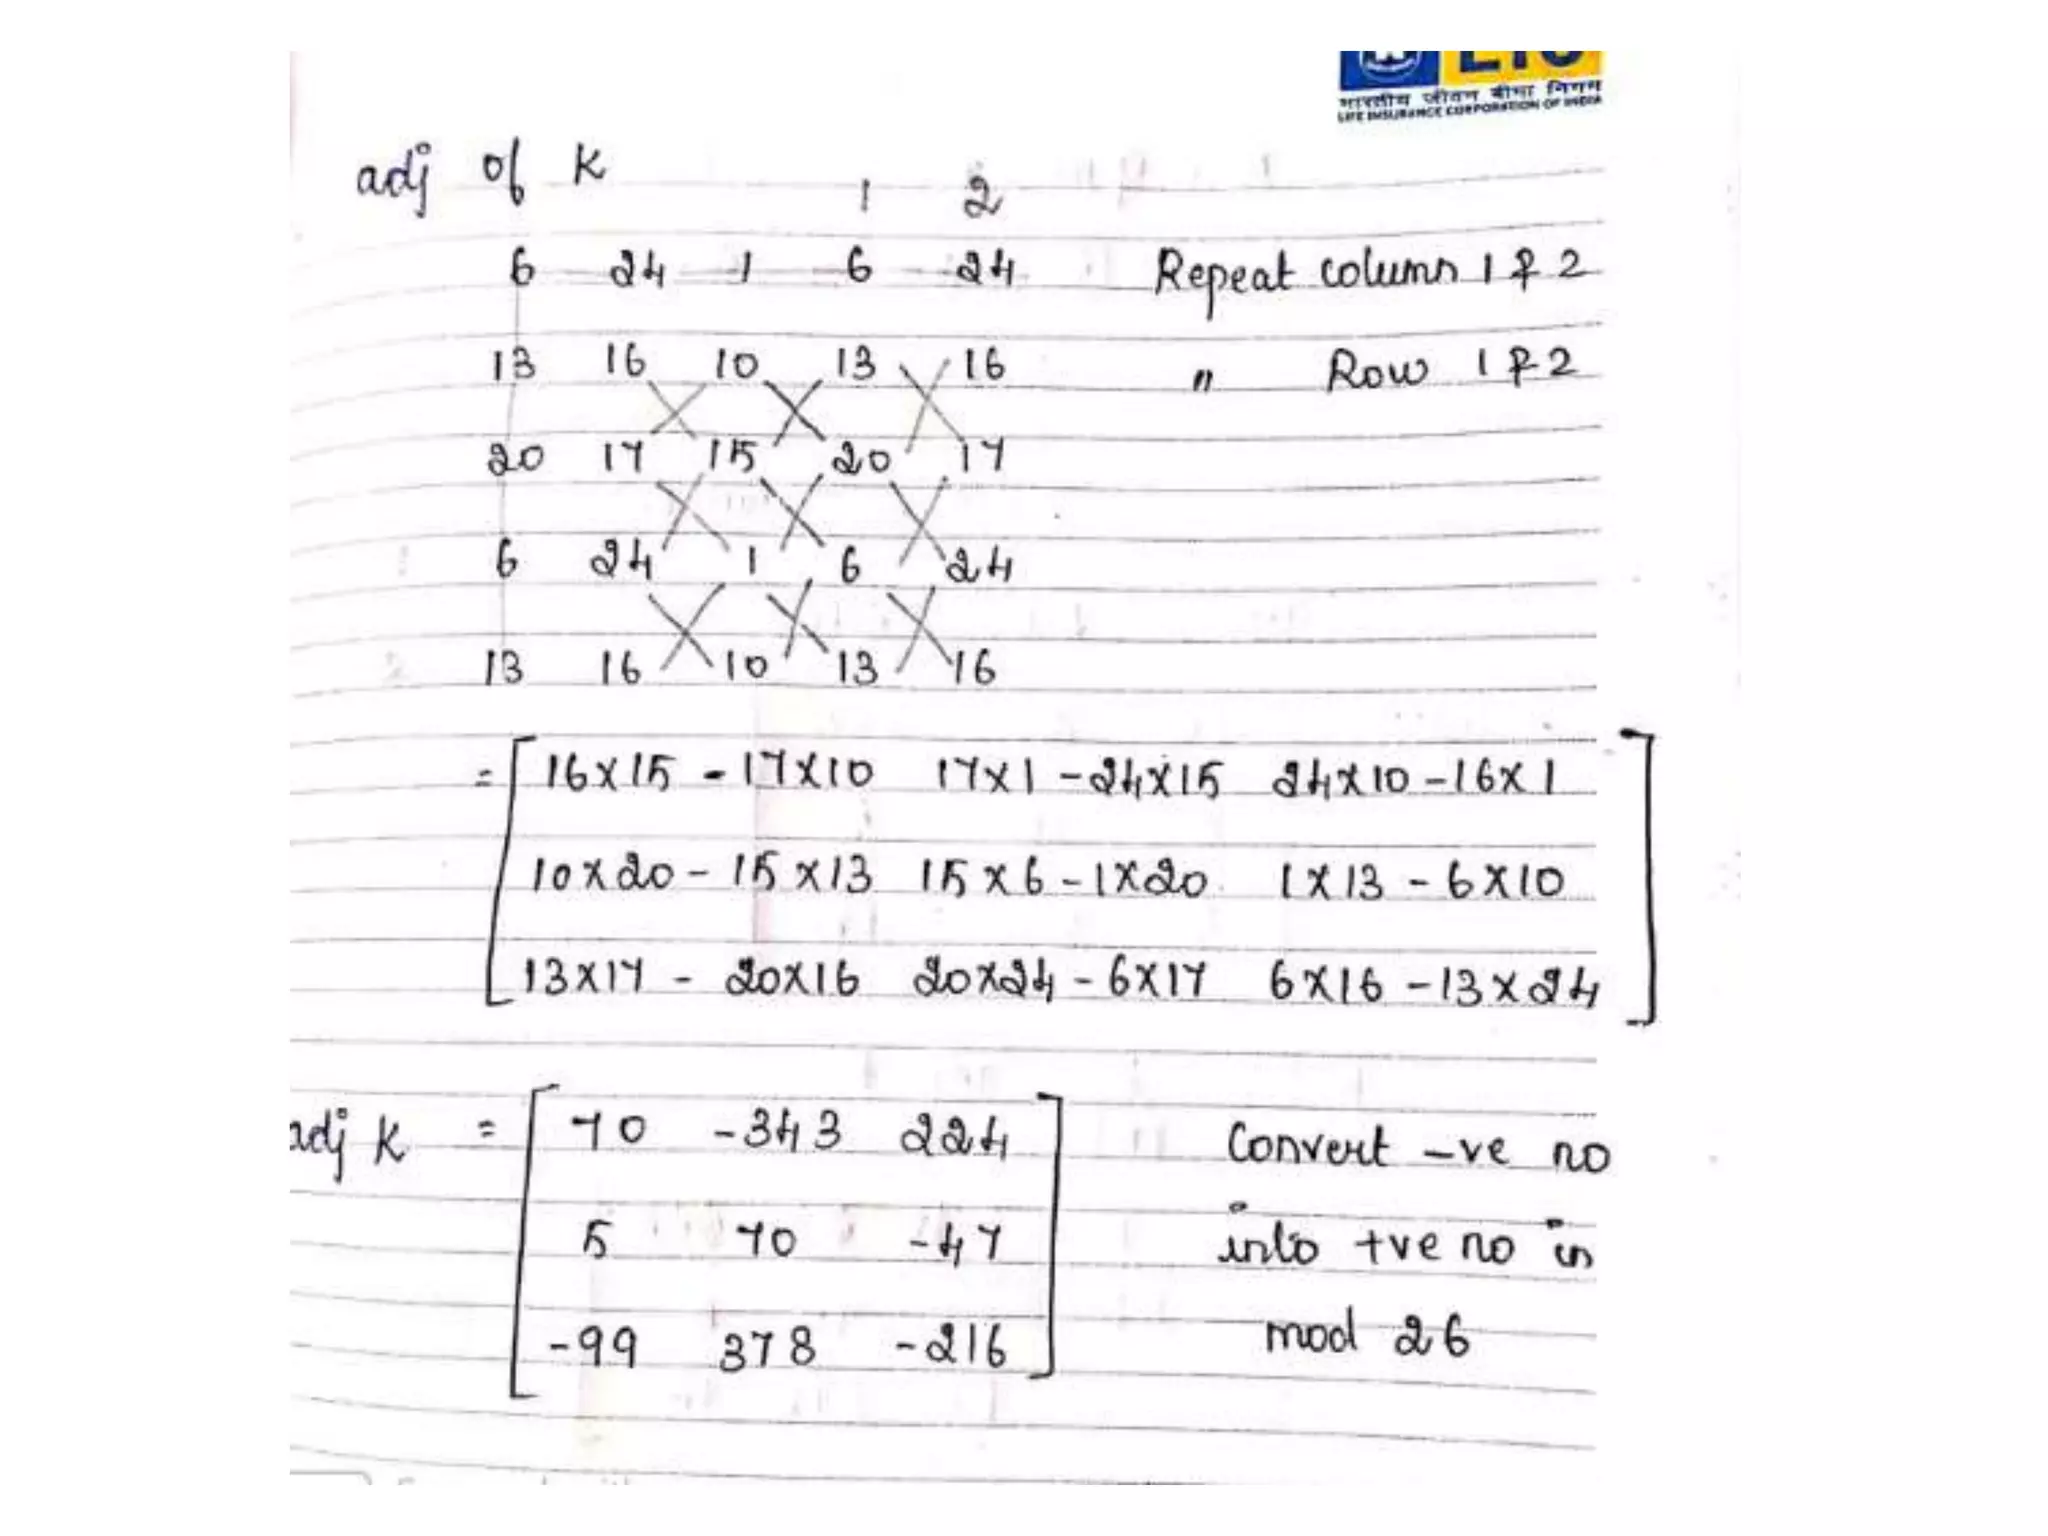 भारतीय जीवन बीमा निगम
LIFE INSURANCE CORPORATION OF INDIA
adj of K
1 2
6 24 1 6 24 Repeat column 1 & 2
13 16 10 13 16 " Row 1 & 2
20 17 15 20 17
6 24 1 6 24
13 16 10 13 16
= [ 16×15 - 17×10 17×1 - 24×15 24×10 - 16×1
10×20 - 15×13 15×6 - 1×20 1×13 - 6×10
13×17 - 20×16 20×24 - 6×17 6×16 - 13×24 ]
adj K = [ 70 -343 224 ] Convert -ve no
5 70 -47 into +ve no in
-99 378 -216 mod 26